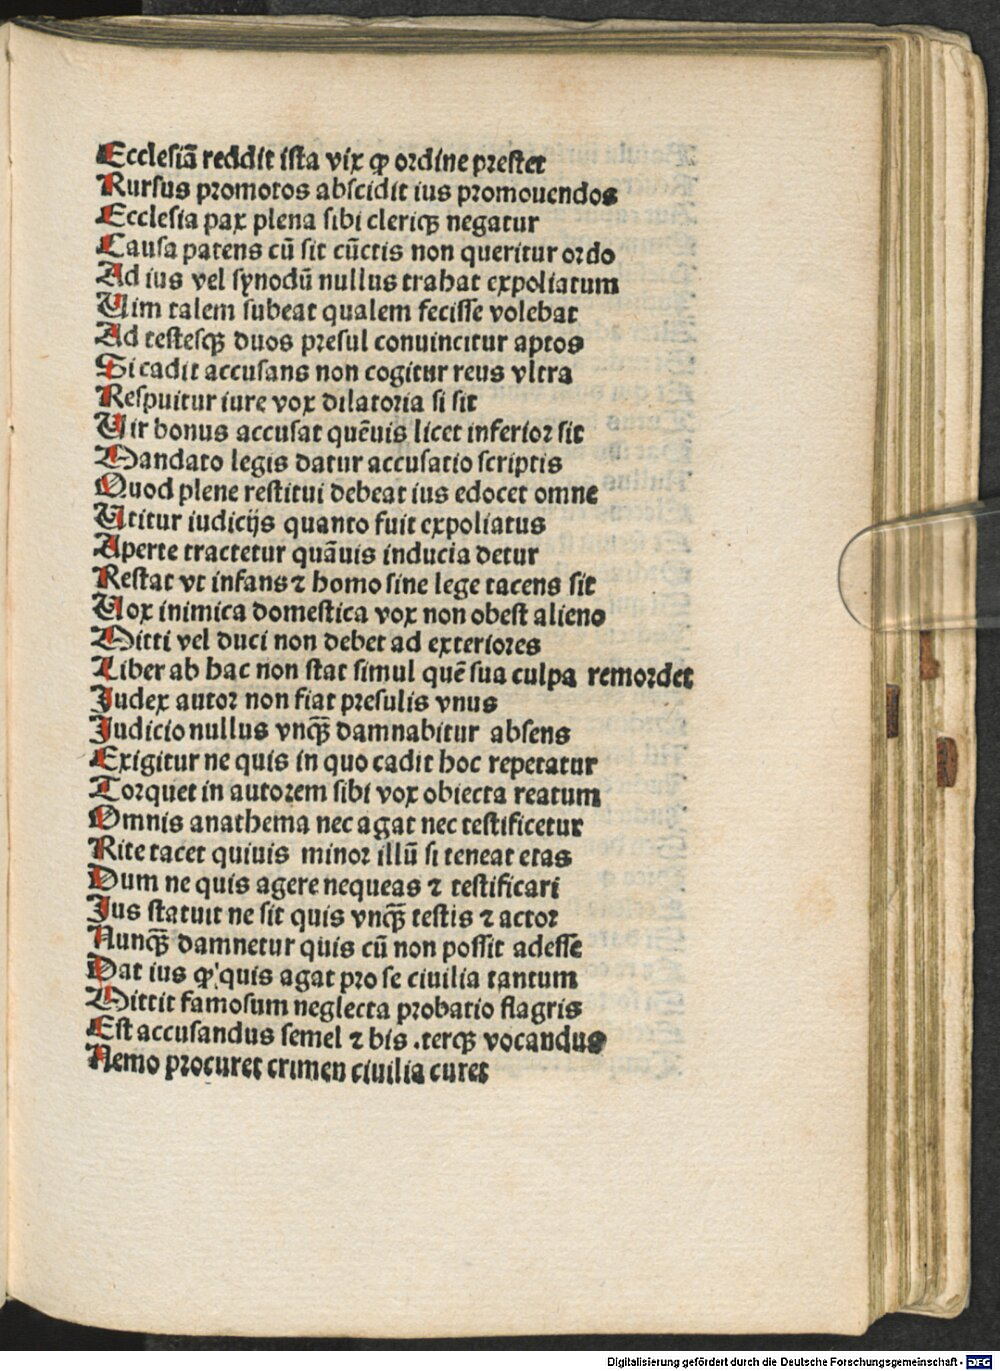 Ecclesiā reddit ista vix ꝙ ordine prestet
Rursus promotos abscidit ius promouendos
Ecclesia pax plena sibi clericꝫ negatur
Causa patens cū sit cūctis non queritur ordo
Ad ius vel synodū nullus trahat expoliatum
Uim talem subeat qualem fecisse volebat
Ad testesqꝫ duos presul conuincitur aptos
Si cadit accusans non cogitur reus vltra
Respuitur iure vox dilatoria si sit
Uir bonus accusat quēuis licet inferior sit
Mandato legis datur accusatio scriptis
Quod plene restitui debeat ius edocet omne
Utitur iudicijs quanto fuit expoliatus
Aperte tractetur quāuis inducia detur
Restat vt infans ⁊ homo sine lege tacens sit
Uox inimica domestica vox non obest alieno
Mitti vel duci non debet ad exteriores
Liber ab hac non stat simul quē sua culpa remordet
Judex autor non fiat presulis vnus
Judicio nullus vnqꝫ damnabitur absens
Exigitur ne quis in quo cadit hoc repetatur
Torquet in autorem sibi vox obiecta reatum
Omnis anathema nec agat nec testificetur
Rite tacet quiuis minor illū si teneat etas
Dum ne quis agere nequeas ⁊ testificari
Jus statuit ne sit quis vnqꝫ testis ⁊ actor
Nunqꝫ damnetur quis cū non possit adesse
Dat ius ꝙ quis agat pro se ciuilia tantum
Mittit famosum neglecta probatio flagris
Est accusandus semel ⁊ bis .terqꝫ vocandus
Nemo procuret crimen ciuilia curet
Digitalisierung gefördert durch die Deutsche Forschungsgemeinschaft - DFG